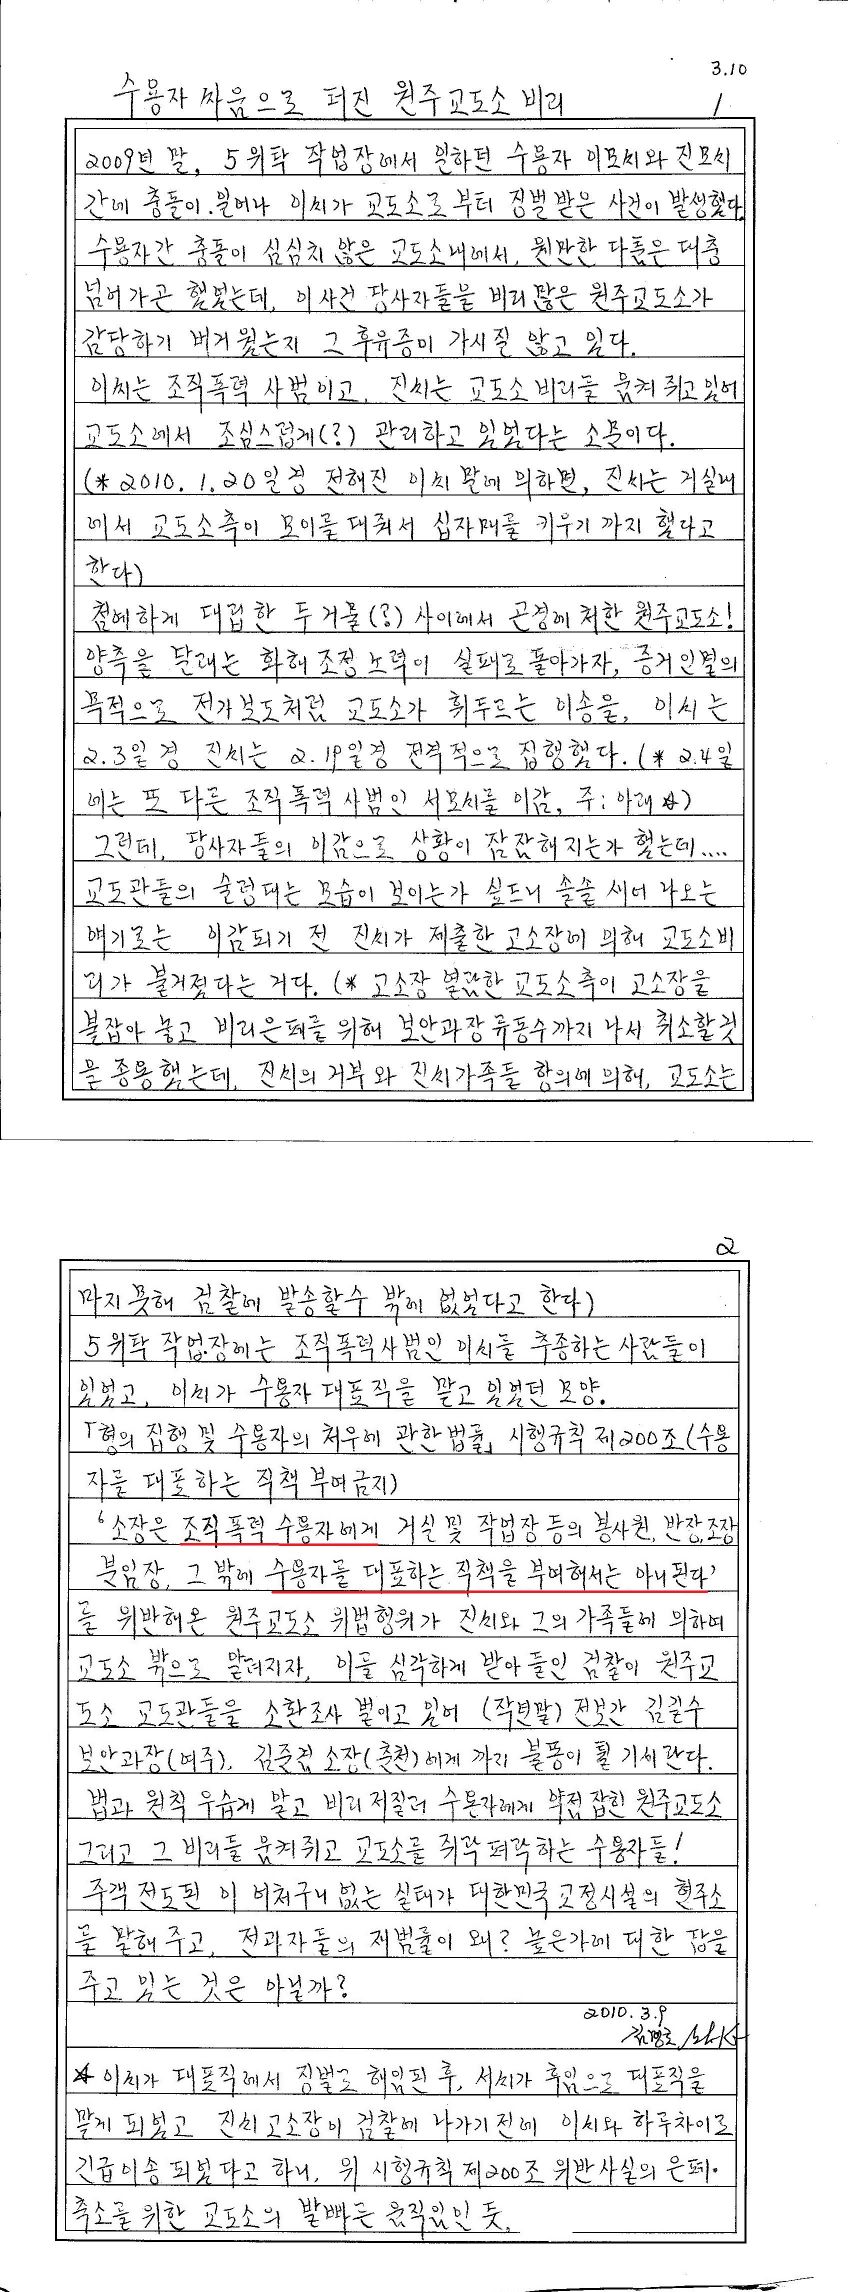 3.10
수용자 싸움으로 터진 원주교도소 비리 1
2009년 말, 5위탁 작업장에서 일하던 수용자 이모씨와 진모씨
간에 충돌이 일어나 이씨가 교도소로 부터 징벌받은 사건이 발생했다.
수용자간 충돌이 심심치 않은 교도소내에서, 웬만한 다툼은 대충
넘어가곤 했었는데, 이사건 당사자들을 비리많은 원주교도소가
감당하기 버거웠는지 그 후유증이 가시질 않고 있다.
이씨는 조직폭력 사범이고, 진씨는 교도소 비리를 움켜쥐고있어
교도소에서 조심스럽게(?) 관리하고 있었다는 소문이다.
(* 2010. 1. 20일경 전해진 이씨 말에 의하면, 진씨는 거실내
에서 교도소측이 모이를 대줘서 십자매를 키우기 까지 했다고
한다)
첨예하게 대립한 두 거물(?) 사이에서 곤경에 처한 원주교도소!
양측을 달래는 화해 조정노력이 실패로 돌아가자, 증거인멸의
목적으로 전가보도처럼 교도소가 휘두르는 이송을, 이씨는
2.3일경 진씨는 2.19일경 전격적으로 집행했다. (* 2.4일
에는 또 다른 조직폭력사범인 서모씨를 이감, 주: 아래 ☆)
그런데, 당사자들의 이감으로 상황이 잠잠해지는가 했는데....
교도관들의 술렁대는 모습이 보이는가 싶드니 솔솔 새어 나오는
얘기로는 이감되기 전 진씨가 제출한 고소장에 의해 교도소비
리가 불거졌다는 거다. (* 고소장 열람한 교도소측이 고소장을
붙잡아 놓고 비리은폐를 위해 보안과장 류동수까지 나서 취소할것
을 종용했는데, 진씨의 거부와 진씨가족들 항의에 의해, 교도소는
2
마지못해 검찰에 발송할수 밖에 없었다고 한다)
5위탁 작업장에는 조직폭력사범인 이씨를 추종하는 사람들이
있었고, 이씨가 수용자 대표직을 맡고 있었던 모양.
「형의 집행 및 수용자의 처우에 관한법률」 시행규칙 제200조(수용
자를 대표하는 직책 부여금지)
‘소장은 조직폭력 수용자에게 거실 및 작업장 등의 봉사원, 반장, 조장
분임장, 그 밖에 수용자를 대표하는 직책을 부여해서는 아니된다’
를 위반해온 원주교도소 위법행위가 진씨와 그의 가족들에 의하여
교도소 밖으로 알려지자, 이를 심각하게 받아들인 검찰이 원주교
도소 교도관들을 소환조사 벌이고 있어 (작년말) 전보간 김길수
보안과장(여주), 김준겸 소장(춘천)에게 까지 불똥이 튈 기세란다.
법과 원칙 우습게 알고 비리 저질러 수용자에게 약점잡힌 원주교도소
그리고 그 비리를 움켜쥐고 교도소를 쥐락펴락하는 수용자들!
주객 전도된 이 어처구니 없는 실태가 대한민국교정시설의 현주소
를 말해 주고, 전과자들의 재범률이 왜? 높은가에 대한 답을
주고 있는 것은 아닐까?
2010. 3. 9
김명호
☆ 이씨가 대표직에서 징벌로 해임된 후, 서씨가 후임으로 대표직을
맡게 되었고 진씨 고소장이 검찰에 나가기전에 이씨와 하루차이로
긴급이송되었다고 하니, 위 시행규칙 제200조 위반사실의 은폐·
축소를 위한 교도소의 발빠른 움직임인 듯.